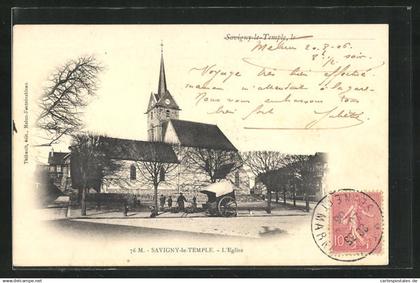 Savigny-le-Temple, le
Melun 20-8-06.
8h ½ soir.
Voyage très bien effectué
maman m'attendait à la gare
Nous vous embrassons tous
bien fort
Thibault, édit., Melun-Fontainebleau
10
MELUN
76 M. - SAVIGNY-le-TEMPLE. - L'Eglise